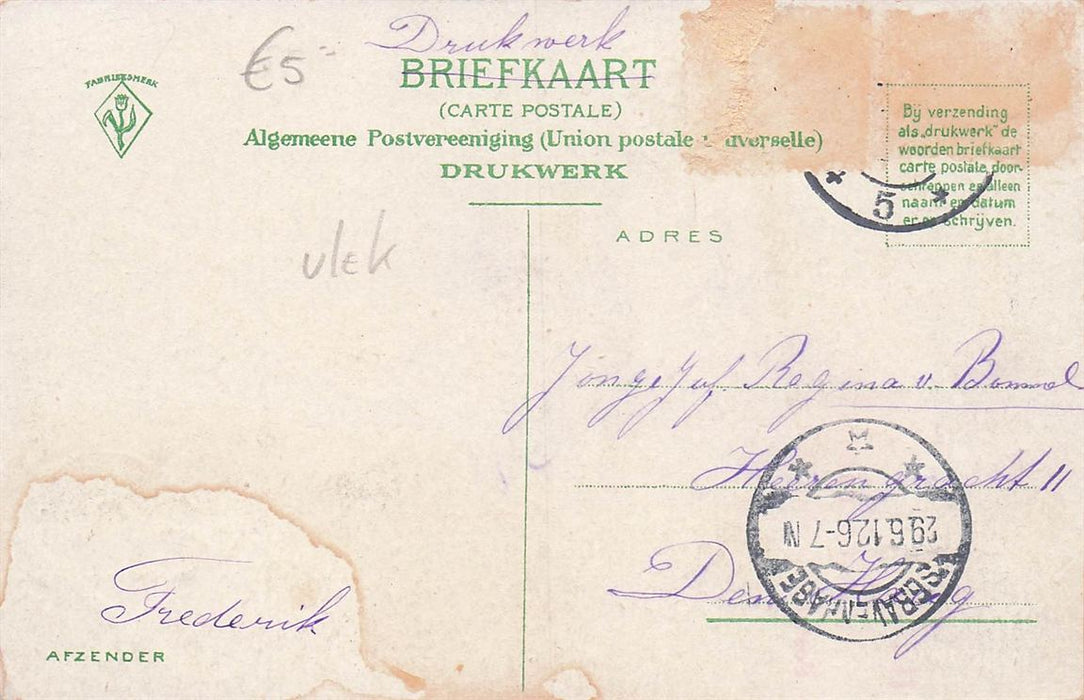 Drukwerk
€5-
BRIEFKAART
FABRIEKSMERK
(CARTE POSTALE)
Algemeene Postvereeniging (Union postale universelle)
DRUKWERK
Bij verzending
als „drukwerk" de
woorden briefkaart
carte postale door-
schrappen en alleen
naam en datum
er op schrijven.
5
ADRES
vlek
Jongejuf Regina v. Bommel
Heerengracht 11
Den Haag
29.6.12 6-7 N
'S GRAVENHAGE
Frederik
AFZENDER